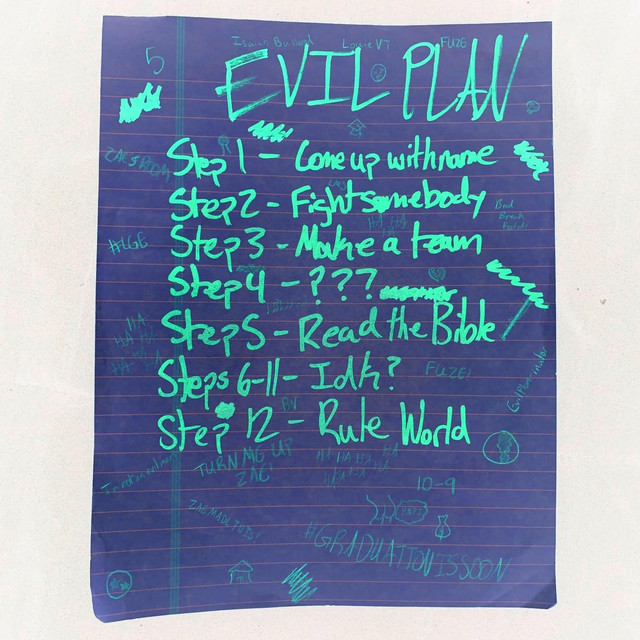 5
Louie VT
FUZE
EVIL PLAN
Step 1 - Come up with name
Step 2 - Fight somebody
Step 3 - Make a team
Step 4 - ???
Step 5 - Read the Bible
Steps 6-11 - Idk?
Step 12 - Rule World
#LGE
HA
HA HA
HA HA
FUZE!
BV
TURN MG UP
ZAC!
HA HA HA HA
HA HA HA
10-9
ZAC MADE THIS!
#GRADUATIONISSOON